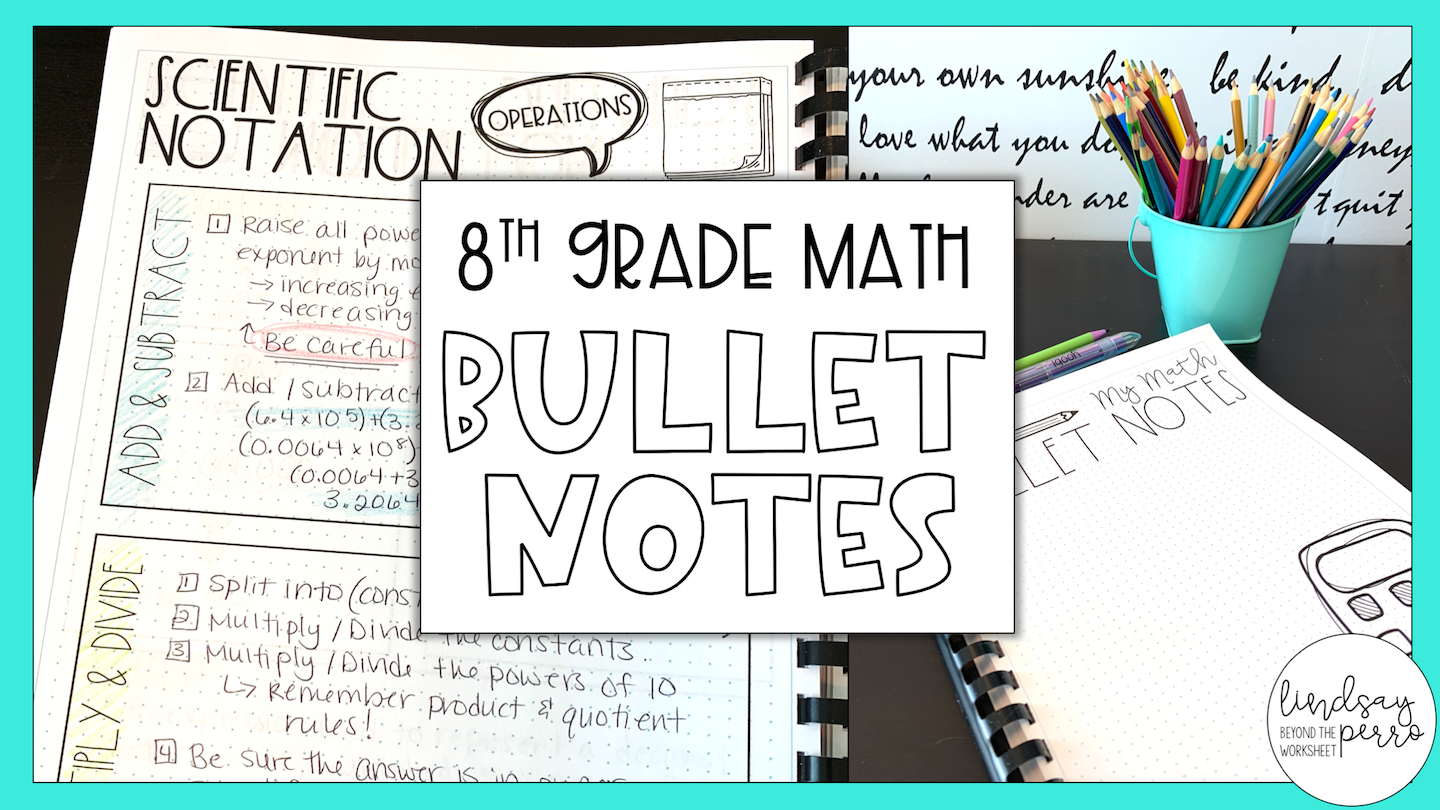 SCIENTIFIC
NOTATION
OPERATIONS
ADD & SUBTRACT
1 Raise all powe
exponent by mo
→ increasing e
→ decreasing
↑ Be careful
2 Add / subtract
(6.4 x 10^5) + (3.2
(0.0064 x 10^8)
(0.0064 + 3
3.2064
IPLY & DIVIDE
1 Split into (const
2 Multiply / Divide the constants.
3 Multiply / Divide the powers of 10
↳ Remember product & quotient
rules!
4 Be sure the answer is in
8TH GRADE MATH
BULLET
NOTES
your own sunshine be kind, d
love what you do
nder are
tquit
My Math
LLET NOTES
lindsay
perro
BEYOND THE
WORKSHEET